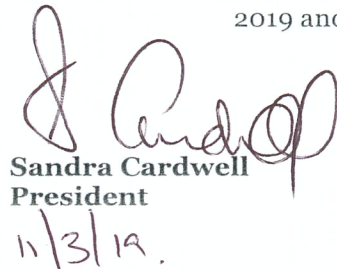 2019 and
S Cardwell
Sandra Cardwell
President
11/3/19.